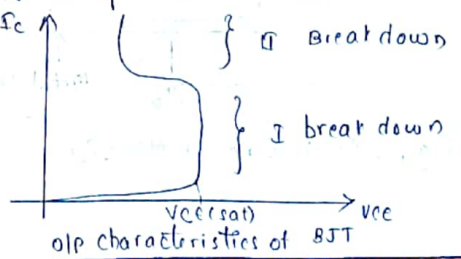 Ic
II Breakdown
I breakdown
VCE(sat)
VCE
o/p characteristics of BJT